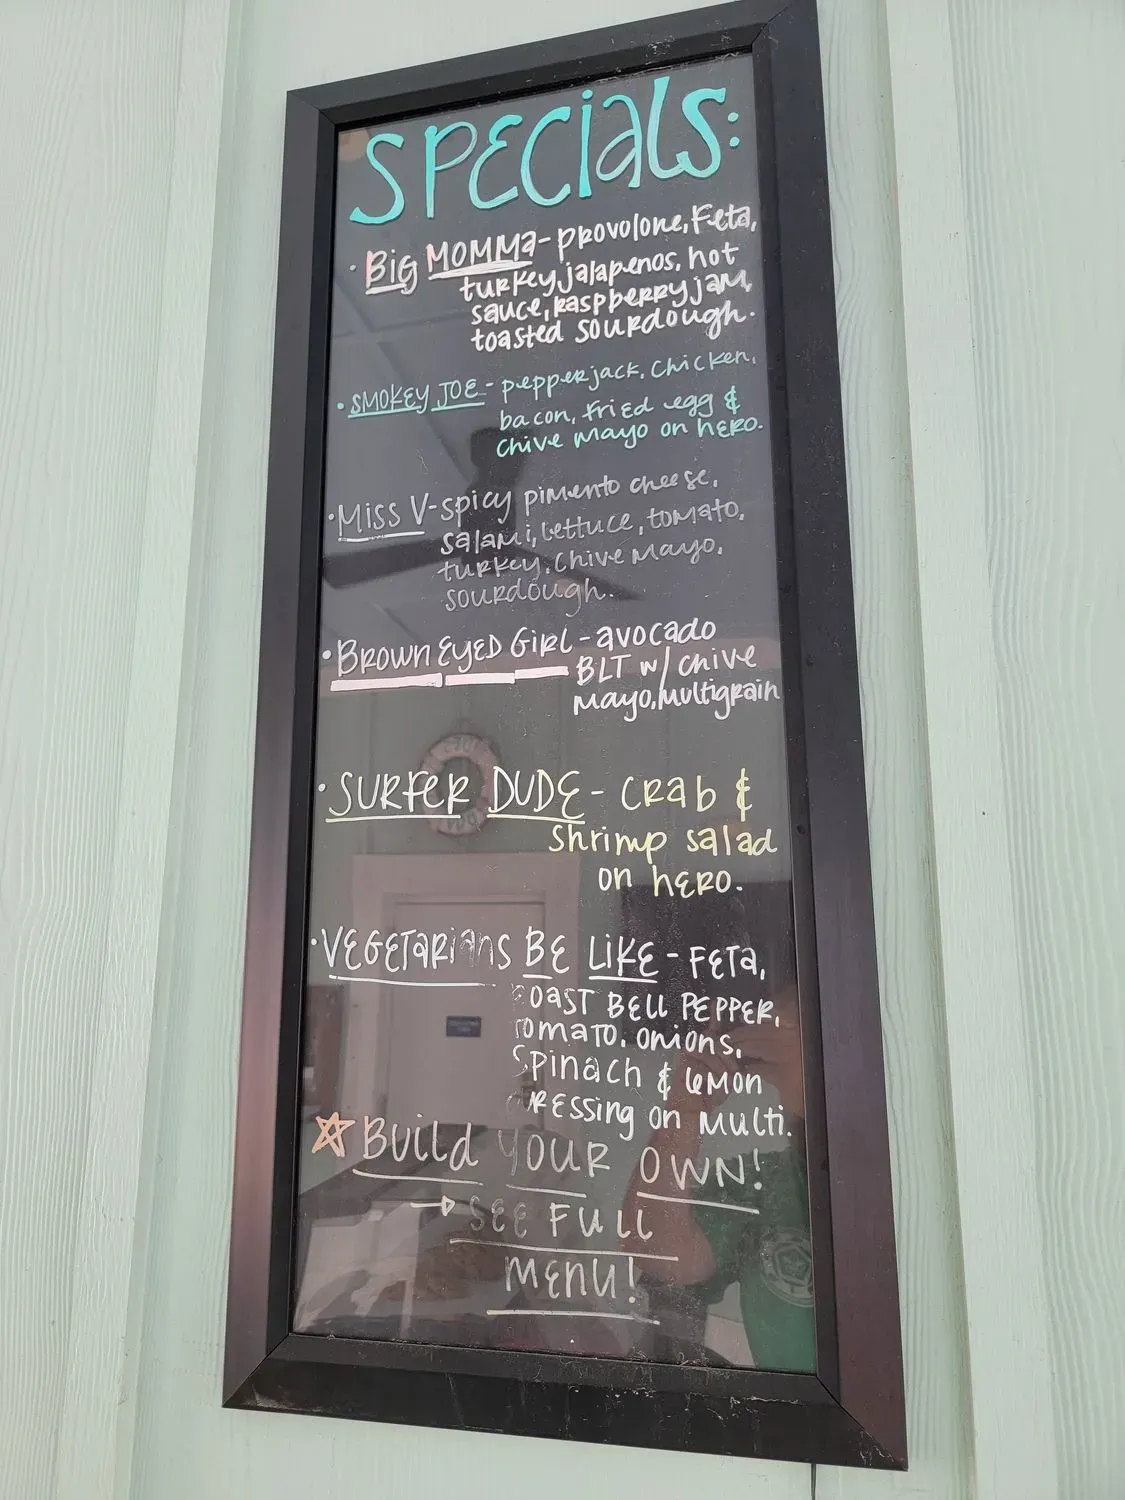 SPECIALS:
· Big MOMMA - provolone, Feta,
turkey, jalapenos, hot
sauce, raspberry jam,
toasted sourdough.
· SMOKEY JOE - pepperjack, chicken,
bacon, fried egg &
chive mayo on hero.
· Miss V - spicy pimento cheese,
salami, lettuce, tomato,
turkey, chive mayo,
sourdough.
· BROWN EYED GIRL - avocado
BLT w/ chive
mayo, multigrain
· SURFER DUDE - crab &
shrimp salad
on hero.
· VEGETARIANS BE LIKE - FETA,
ROAST BELL PEPPER,
TOMATO, ONIONS,
Spinach & LEMON
DRESSING on MULTI.
☆ Build YOUR OWN!
→ SEE FULL
MENU!